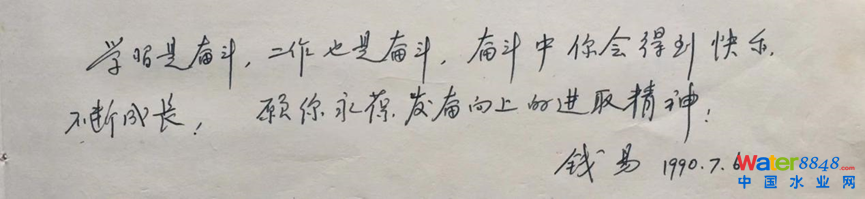 学习是奋斗，工作也是奋斗，奋斗中你会得到快乐，
不断成长！愿你永葆发奋向上的进取精神！
钱易 1990.7.6
Water8848.com
中国水业网